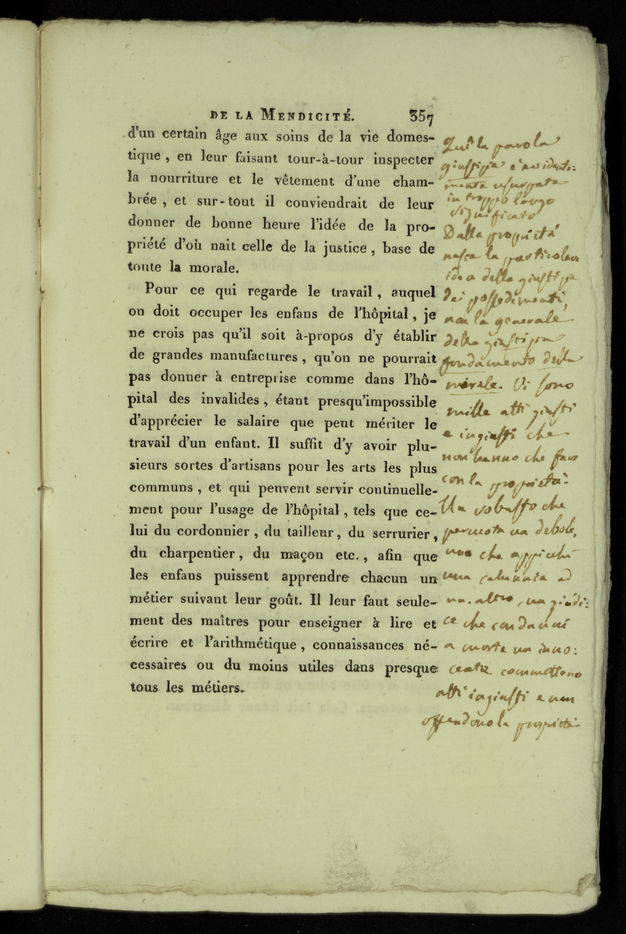 DE LA MENDICITÉ. 357
d'un certain âge aux soins de la vie domes-
tique , en leur faisant tour-à-tour inspecter
la nourriture et le vêtement d'une cham-
brée , et sur-tout il conviendrait de leur
donner de bonne heure l'idée de la pro-
priété d'où nait celle de la justice , base de
toute la morale.
Pour ce qui regarde le travail , auquel
on doit occuper les enfans de l'hôpital , je
ne crois pas qu'il soit à-propos d'y établir
de grandes manufactures , qu'on ne pourrait
pas donner à entreprise comme dans l'hô-
pital des invalides , étant presqu'impossible
d'apprécier le salaire que peut mériter le
travail d'un enfant. Il suffit d'y avoir plu-
sieurs sortes d'artisans pour les arts les plus
communs , et qui peuvent servir continuelle-
ment pour l'usage de l'hôpital , tels que ce-
lui du cordonnier , du tailleur , du serrurier ,
du charpentier , du maçon etc. , afin que
les enfans puissent apprendre chacun un
métier suivant leur goût. Il leur faut seule-
ment des maîtres pour enseigner à lire et
écrire et l'arithmétique , connaissances né-
cessaires ou du moins utiles dans presque
tous les métiers.
Qui la parola
giustizia è evidente:
mente usurpata
in troppo largo
significato
Dalla proprietà
nasce la particolare
idea della giustizia
dei possedimenti,
non la generale
della giustizia
fondamento della
morale. Vi sono
mille atti giusti
e ingiusti che
non hanno che fare
con la proprietà.
Un robusto che
percuota un debole,
uno che appicchi
una calunnia ad
un altro, un giudi:
ce che condanni
a morte un inno:
cente commettono
atti ingiusti e non
offendono la proprietà.